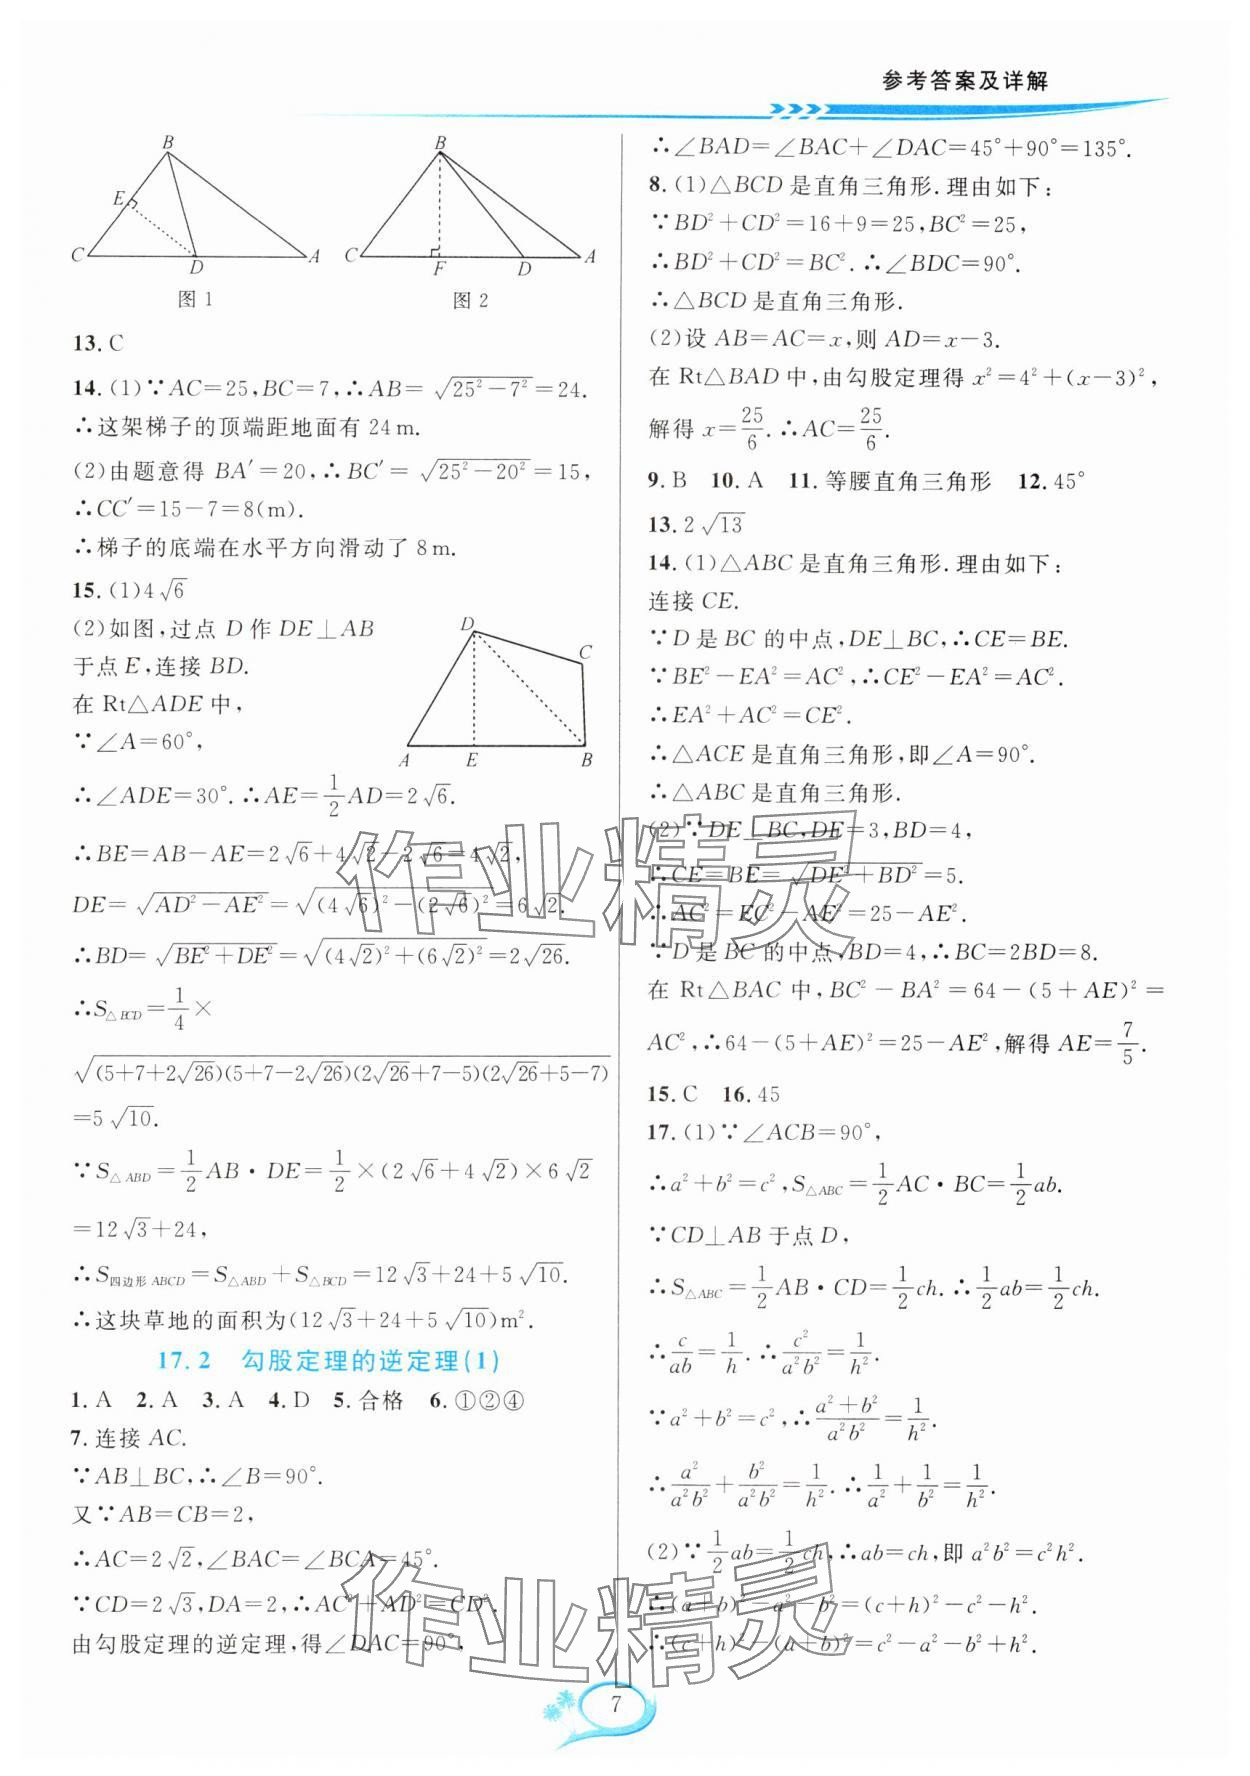 参考答案及详解
B
E
C
D
A
图 1
B
C
F
D
A
图 2
13. C
14. (1)∵AC=25,BC=7,∴AB=√(25²-7²)=24.
∴这架梯子的顶端距地面有 24 m.
(2)由题意得 BA′=20,∴BC′=√(25²-20²)=15,
∴CC′=15-7=8(m).
∴梯子的底端在水平方向滑动了 8 m.
15. (1)4√6
(2)如图,过点 D 作 DE⊥AB
于点 E,连接 BD.
在 Rt△ADE 中,
∵∠A=60°,
D
C
A
E
B
∴∠ADE=30°.∴AE=1/2 AD=2√6.
∴BE=AB-AE=2√6+4√2-2√6=4√2,
DE=√(AD²-AE²)=√((4√6)²-(2√6)²)=6√2.
∴BD=√(BE²+DE²)=√((4√2)²+(6√2)²)=2√26.
∴S△BCD=1/4×
√((5+7+2√26)(5+7-2√26)(2√26+7-5)(2√26+5-7))
=5√10.
∵S△ABD=1/2 AB·DE=1/2×(2√6+4√2)×6√2
=12√3+24,
∴S四边形ABCD=S△ABD+S△BCD=12√3+24+5√10.
∴这块草地的面积为(12√3+24+5√10)m².
17.2 勾股定理的逆定理(1)
1. A 2. A 3. A 4. D 5. 合格 6. ①②④
7. 连接 AC.
∵AB⊥BC,∴∠B=90°.
又∵AB=CB=2,
∴AC=2√2,∠BAC=∠BCA=45°.
∵CD=2√3,DA=2,∴AC²+AD²=CD².
由勾股定理的逆定理,得∠DAC=90°,
∴∠BAD=∠BAC+∠DAC=45°+90°=135°.
8. (1)△BCD 是直角三角形.理由如下:
∵BD²+CD²=16+9=25,BC²=25,
∴BD²+CD²=BC².∴∠BDC=90°.
∴△BCD 是直角三角形.
(2)设 AB=AC=x,则 AD=x-3.
在 Rt△BAD 中,由勾股定理得 x²=4²+(x-3)²,
解得 x=25/6.∴AC=25/6.
9. B 10. A 11. 等腰直角三角形 12. 45°
13. 2√13
14. (1)△ABC 是直角三角形.理由如下:
连接 CE.
∵D 是 BC 的中点,DE⊥BC,∴CE=BE.
∵BE²-EA²=AC²,∴CE²-EA²=AC².
∴EA²+AC²=CE².
∴△ACE 是直角三角形,即∠A=90°.
∴△ABC 是直角三角形.
(2)∵DE⊥BC,DE=3,BD=4,
∴CE=BE=√(DE²+BD²)=5.
∴AC²=EC²-AE²=25-AE².
∵D 是 BC 的中点,BD=4,∴BC=2BD=8.
在 Rt△BAC 中,BC²-BA²=64-(5+AE)²=
AC²,∴64-(5+AE)²=25-AE²,解得 AE=7/5.
15. C 16. 45
17. (1)∵∠ACB=90°,
∴a²+b²=c²,S△ABC=1/2 AC·BC=1/2 ab.
∵CD⊥AB 于点 D,
∴S△ABC=1/2 AB·CD=1/2 ch.∴1/2 ab=1/2 ch.
∴c/ab=1/h.∴c²/a²b²=1/h².
∵a²+b²=c²,∴(a²+b²)/a²b²=1/h².
∴a²/a²b²+b²/a²b²=1/h².∴1/a²+1/b²=1/h².
(2)∵1/2 ab=1/2 ch,∴ab=ch,即 a²b²=c²h².
∴(a+b)²-a²-b²=(c+h)²-c²-h².
∴(c+h)²-(a+b)²=c²-a²-b²+h².
作业精灵
作业精灵
7